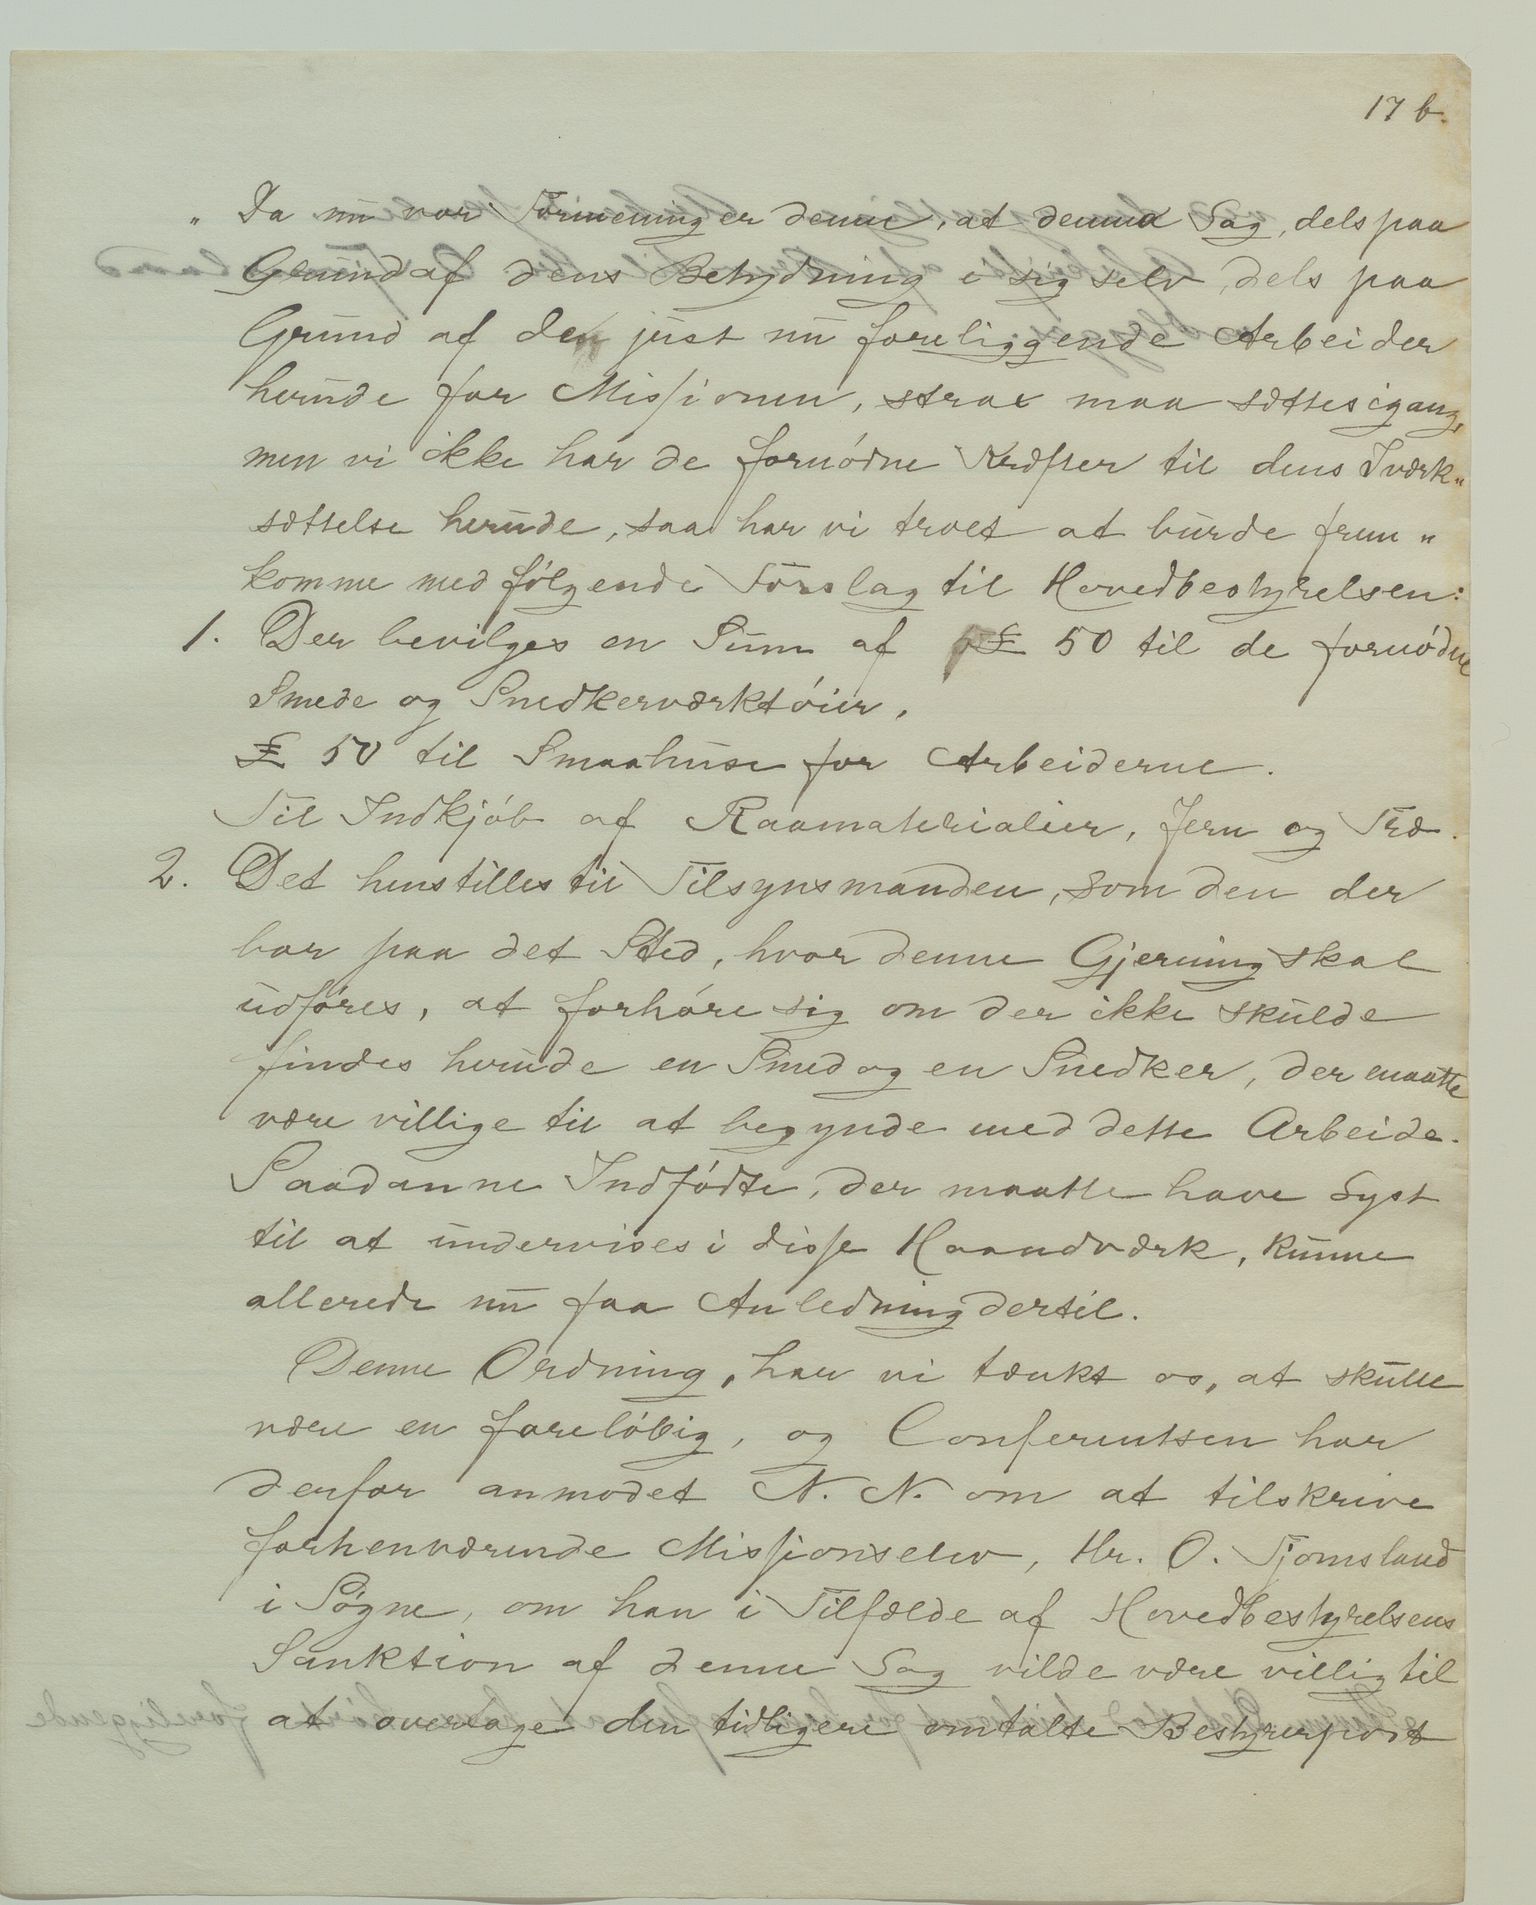 17 b.
„ Da nu vor Formening er denne, at denne Sag, dels paa
Grund af dens Betydning i sig selv, dels paa
Grund af de just nu foreliggende Arbeider
herude for Missionen, strax maa sættes igang,
men vi ikke har de fornódne Kræfter til dens Iværk„
sættelse herude, saa har vi troet at burde frem„
komme med fólgende Forslag til Hovedbestyrelsen:
1. Der bevilges en Sum af £ 50 til de fornódne
Smede og Snedkerværktóier,
£ 50 til Smaahuse for Arbeiderne.
Til Indkjób af Raamaterialier, Jern og Træ.
2. Det henstilles til Tilsynsmanden, som den der
bor paa det Sted, hvor denne Gjerning skal
udfóres, at forhóre sig om der ikke skulde
findes herude en Smed og en Snedker, der maatte
være villige til at begynde med dette Arbeide.
Saadanne Indfódte, der maatte have Lyst
til at undervises i disse Haandværk, kunne
allerede nu faa Anledning dertil.
Denne Ordning, har vi tænkt os, at skulle
være en forelóbig, og Conferentsen har
derfor anmodet N. N. om at tilskrive
forhenværende Missionselev, Hr. O. Tjomsland
i Sógne, om han i Tilfælde af Hovedbestyrelsens
Sanktion af denne Sag vilde være villig til
at overtage den tidligere omtalte Bestyrerpost